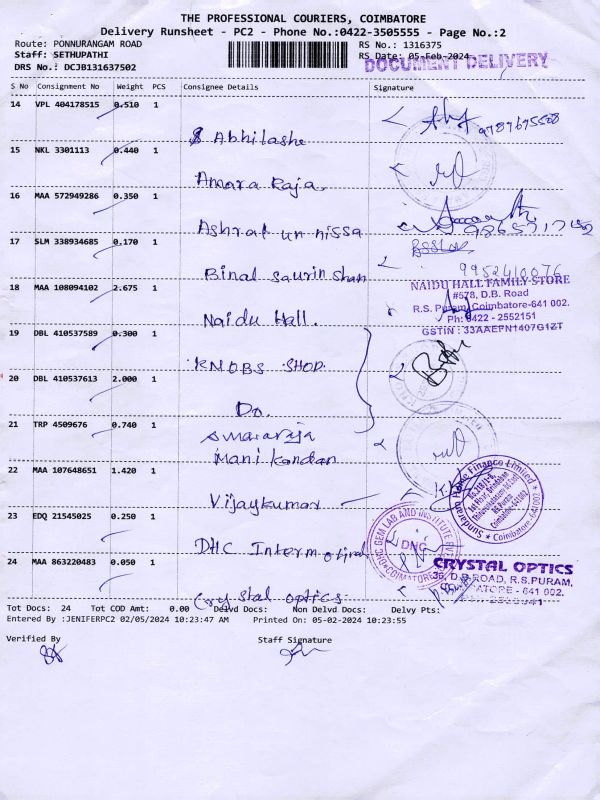 THE PROFESSIONAL COURIERS, COIMBATORE
Delivery Runsheet - PC2 - Phone No.:0422-3505555 - Page No.:2
Route: PONNURANGAM ROAD
RS No.: 1316375
Staff: SETHUPATHI
RS Date: 05-Feb-2024
DOCUMENT DELIVERY
DRS No.: DCJB131637502
S No Consignment No Weight PCS Consignee Details Signature
14 VPL 404178515 0.510 1
Abhilashe
15 NKL 3301113 0.440 1
Amara Raja
16 MAA 572949286 0.350 1
Ashraf un nissa
17 SLM 338934685 0.170 1
9952410076
Binal saurin shah
18 MAA 108094102 2.675 1
NAIDU HALL FAMILY STORE
#578, D.B. Road
R.S. Puram, Coimbatore-641 002.
Ph: 0422 - 2552151
GSTIN : 33AAEFN1407G1ZT
Naidu Hall.
19 DBL 410537589 0.300 1
KNOBS SHOP
20 DBL 410537613 2.000 1
Do.
21 TRP 4509676 0.740 1
Manikandan
22 MAA 107648651 1.420 1
Sundaram Home Finance Limited
Coimbatore-641002
Vijaykumar
23 EDQ 21545025 0.250 1
GEM LAB AND INSTITUTE
COIMBATORE
DHC
24 MAA 863220483 0.050 1
CRYSTAL OPTICS
36, D.B ROAD, R.S.PURAM,
Crystal optics
Tot Docs: 24 Tot COD Amt: 0.00 Delvd Docs: Non Delvd Docs: Delvy Pts:
Entered By :JENIFERPC2 02/05/2024 10:23:47 AM Printed On: 05-02-2024 10:23:55
Verified By Staff Signature